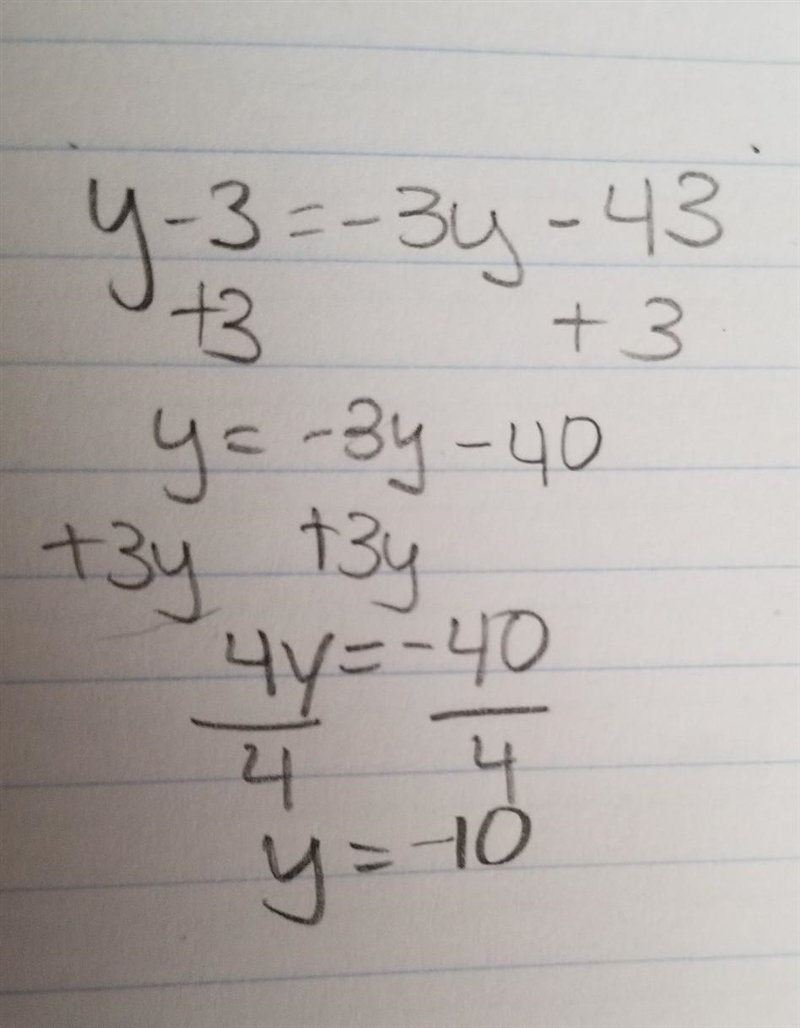 y-3=-3y-43
+3 +3
y=-3y-40
+3y +3y
4y=-40
4 4
y=-10